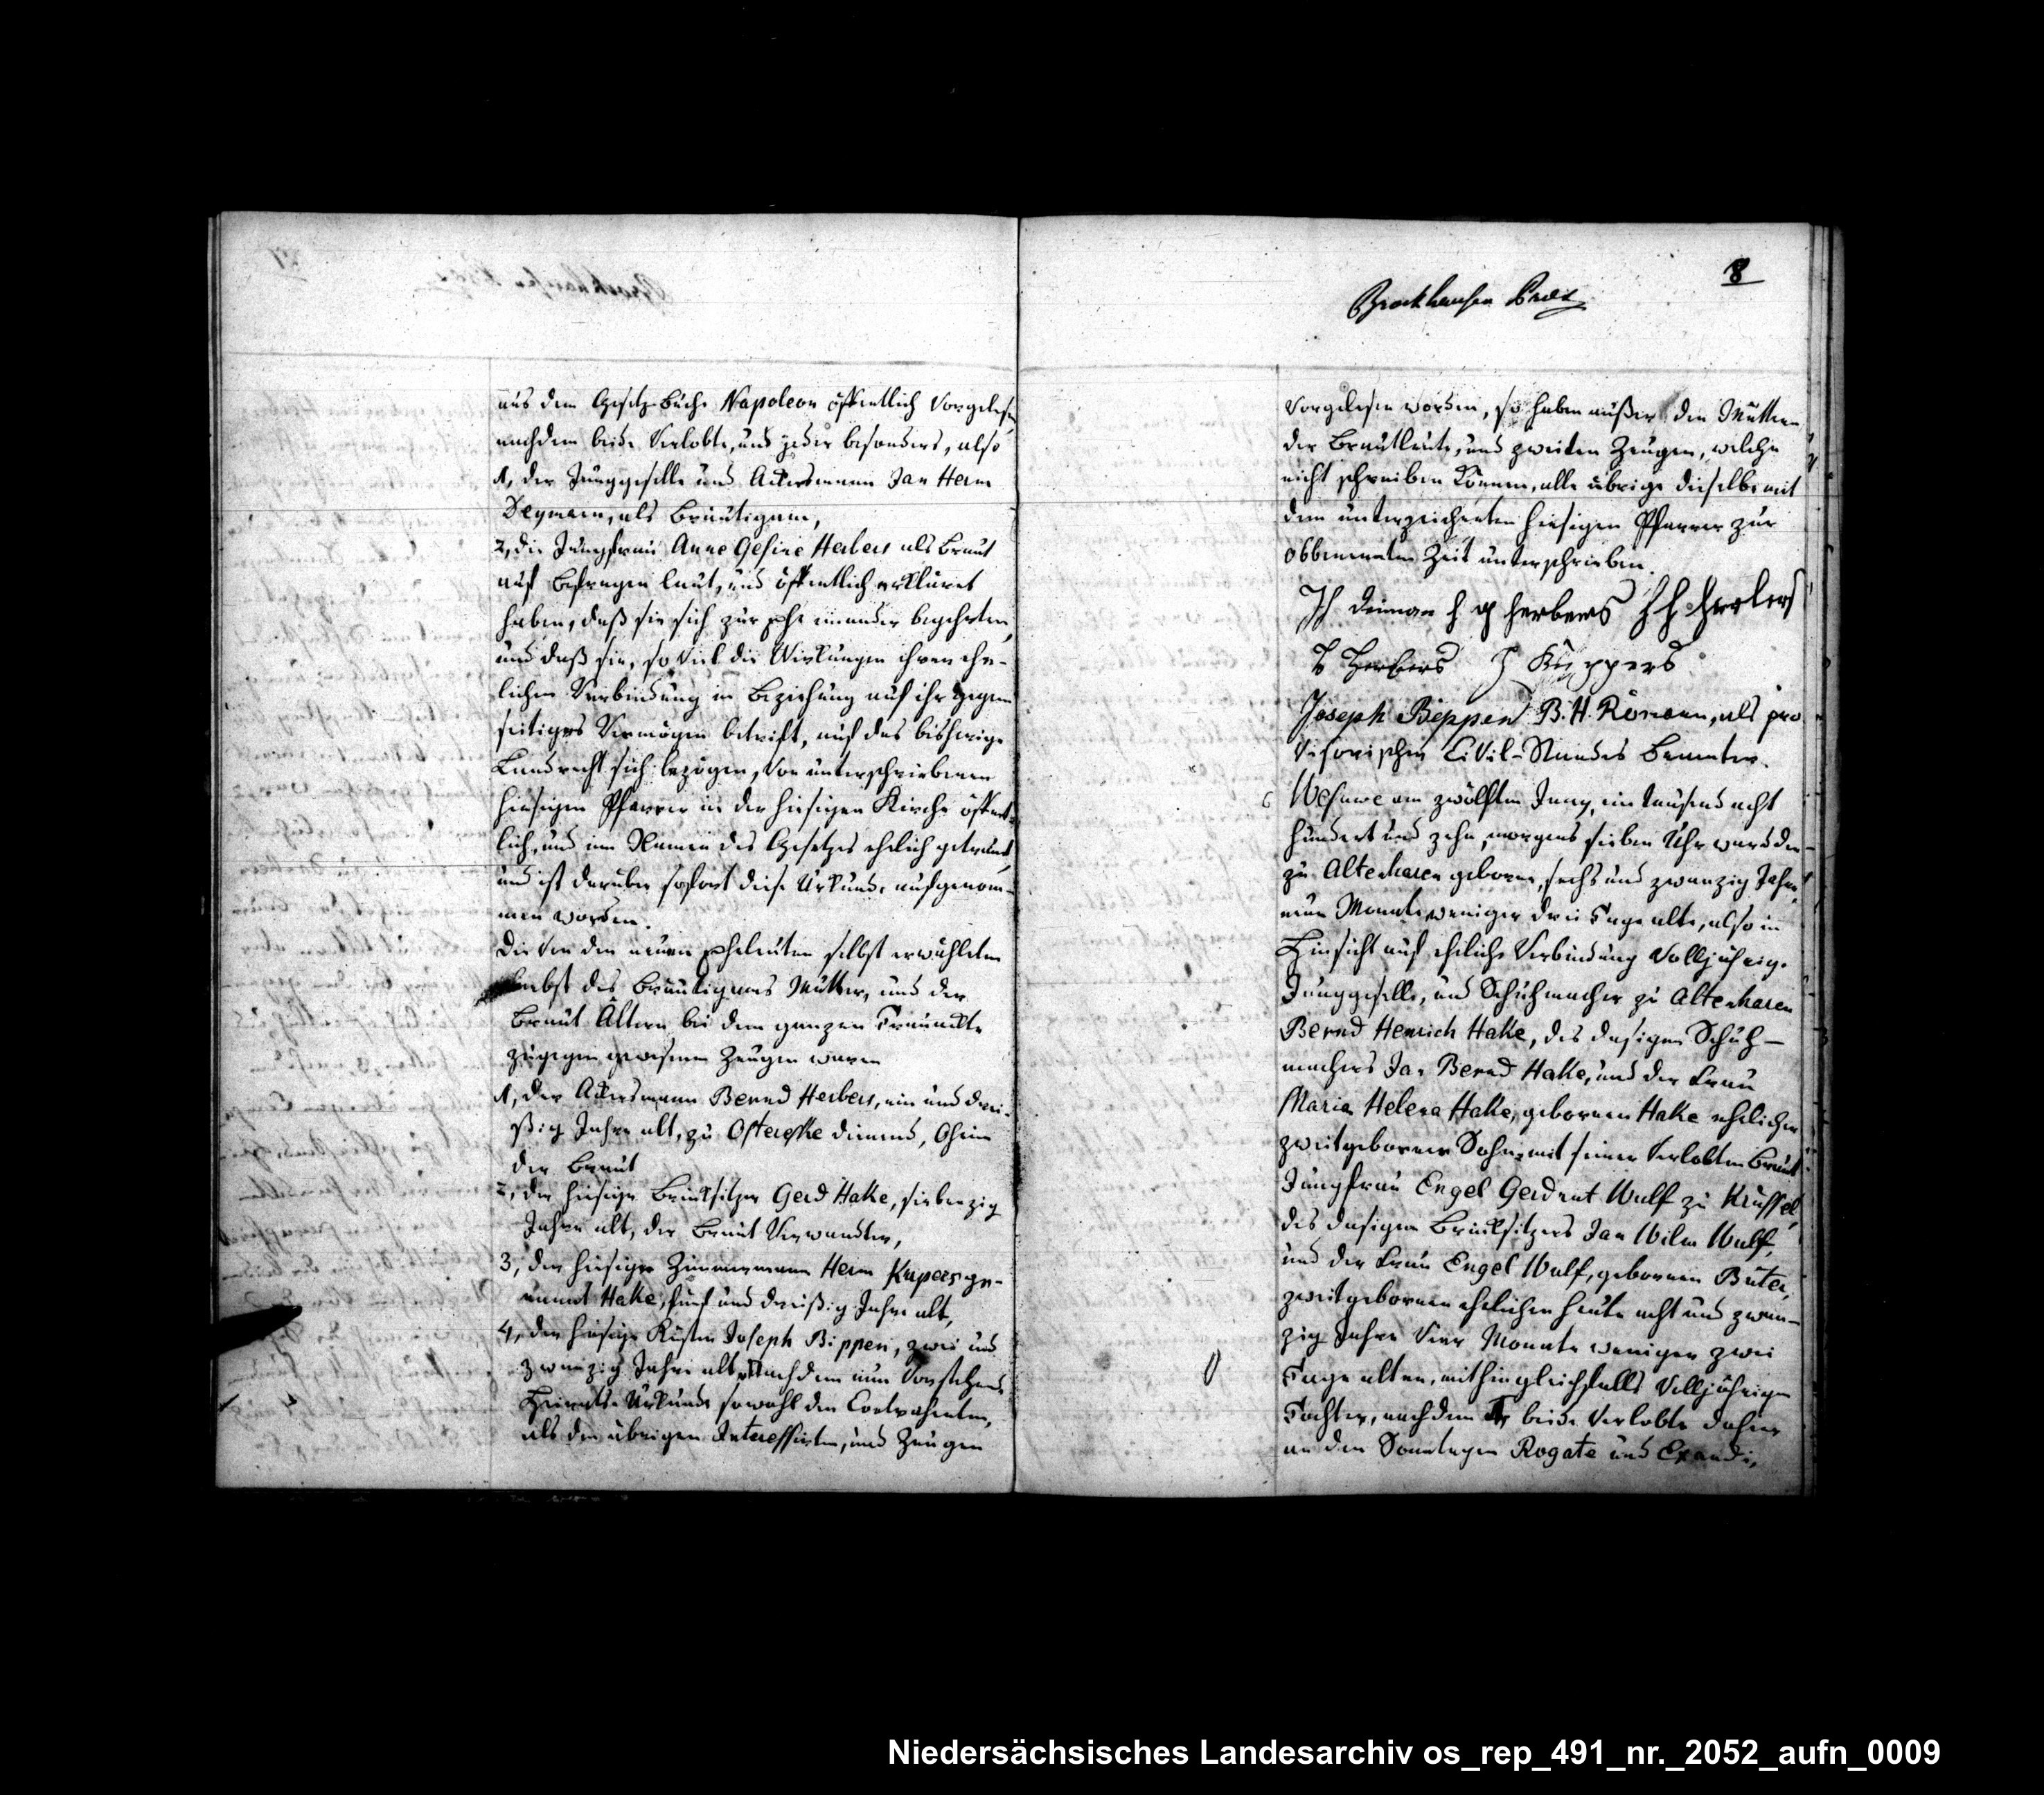 aus dem Gesetz-Buche Napoleon öffentlich vorgelesen,
nachdem beide Verlobte, und jeder besonders, also
1, der Junggeselle und Ackersmann Jan Herm
Deymann, als Bräutigam,
2, die Jungfrau Anne Gesine Herbers als Braut
auf Befragen laut, und öffentlich erkläret
haben, daß sie sich zur Ehe einander begehrten,
und daß sie, so viel die Wirkungen ihren ehe-
lichen Verbindung in Beziehung auf ihr gegen
seitiges Vermögen betrift, auf das bisherige
Landrecht sich bezögen, von unterschriebenen
hiesigen Pfarrer in der hiesigen Kirche öffent-
lich, und im Namen des Gesetzes ehelich getraut,
und ist darüber sofort diese Urkunde aufgenom-
men worden.
Die von den neuen Eheleuten selbst erwählten
nebst des Bräutigams Mutter, und der
Braut Ältern bei dem ganzen Trauackte
zugegen gewesenen Zeugen waren
1, der Ackersmann Bernd Herbers, ein und drei-
ßig Jahre alt, zu dienend, Oheim
der Braut
2, der hiesige Brinksitzer Gerd Hake, siebenzig
Jahre alt, der Braut Verwandter,
3, der hiesige Zimmermann Herm Kupers ge-
nannt Hake, fünf und dreißig Jahre alt,
4, der hiesige Küster Joseph Bippen, zwei und
zwanzig Jahre alt, Nachdem nun vorstehende
Heirats-Urkunde sowohl den Contrahenten,
als den übrigen Interessirten, und Zeugen
8
Brockhausen
vorgelesen worden, so haben außer den Mütter
der Brautleute, und zweiten Zeugen, welche
nicht schreiben können, alle übrige dieselbe mit
dem unterzeichneten hiesigen Pfarrer zur
obbenannten Zeit unterschrieben.
JH Deiman herbers H H Herbers
B Herbers H Küppers
Joseph Bippen B. H. Römann, als pro
visorischer Civil-Standes Beamter.
Wesuwe am zwölften Juny, ein tausend acht
hundert und zehn, morgens sieben Uhr ward der
zu Altenharen geborne, sechs und zwanzig Jahre,
neun Monate weniger drei Tage alte, also in
Hinsicht auf eheliche Verbindung volljährige
Junggeselle, und Schuhmacher zu Altenharen
Bernd Henrich Hake, des dasigen Schuh-
machers Jan Bernd Hake, und der Frau
Maria Helena Hake, gebornen Hake ehelicher
zweitgeborner Sohn, mit seiner verlobten Braut
Jungfrau Engel Gerdrut Wulf zu Krüssel,
des dasigen Brinksitzers Jan Wilm Wulf,
und der Frau Engel Wulf, gebornen Büter,
zweitgebornen ehelichen heute acht und zwan-
zig Jahre vier Monate weniger zwei
Tage alten, mithin gleichfalls volljährigen
Tochter, nachdem beide Verlobte daher
an den Sonntagen Rogate und Exaudi,
Niedersächsisches Landesarchiv os_rep_491_nr._2052_aufn_0009